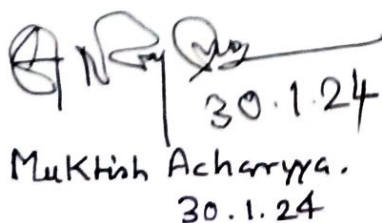 30.1.24
Muktish Acharyya.
30.1.24